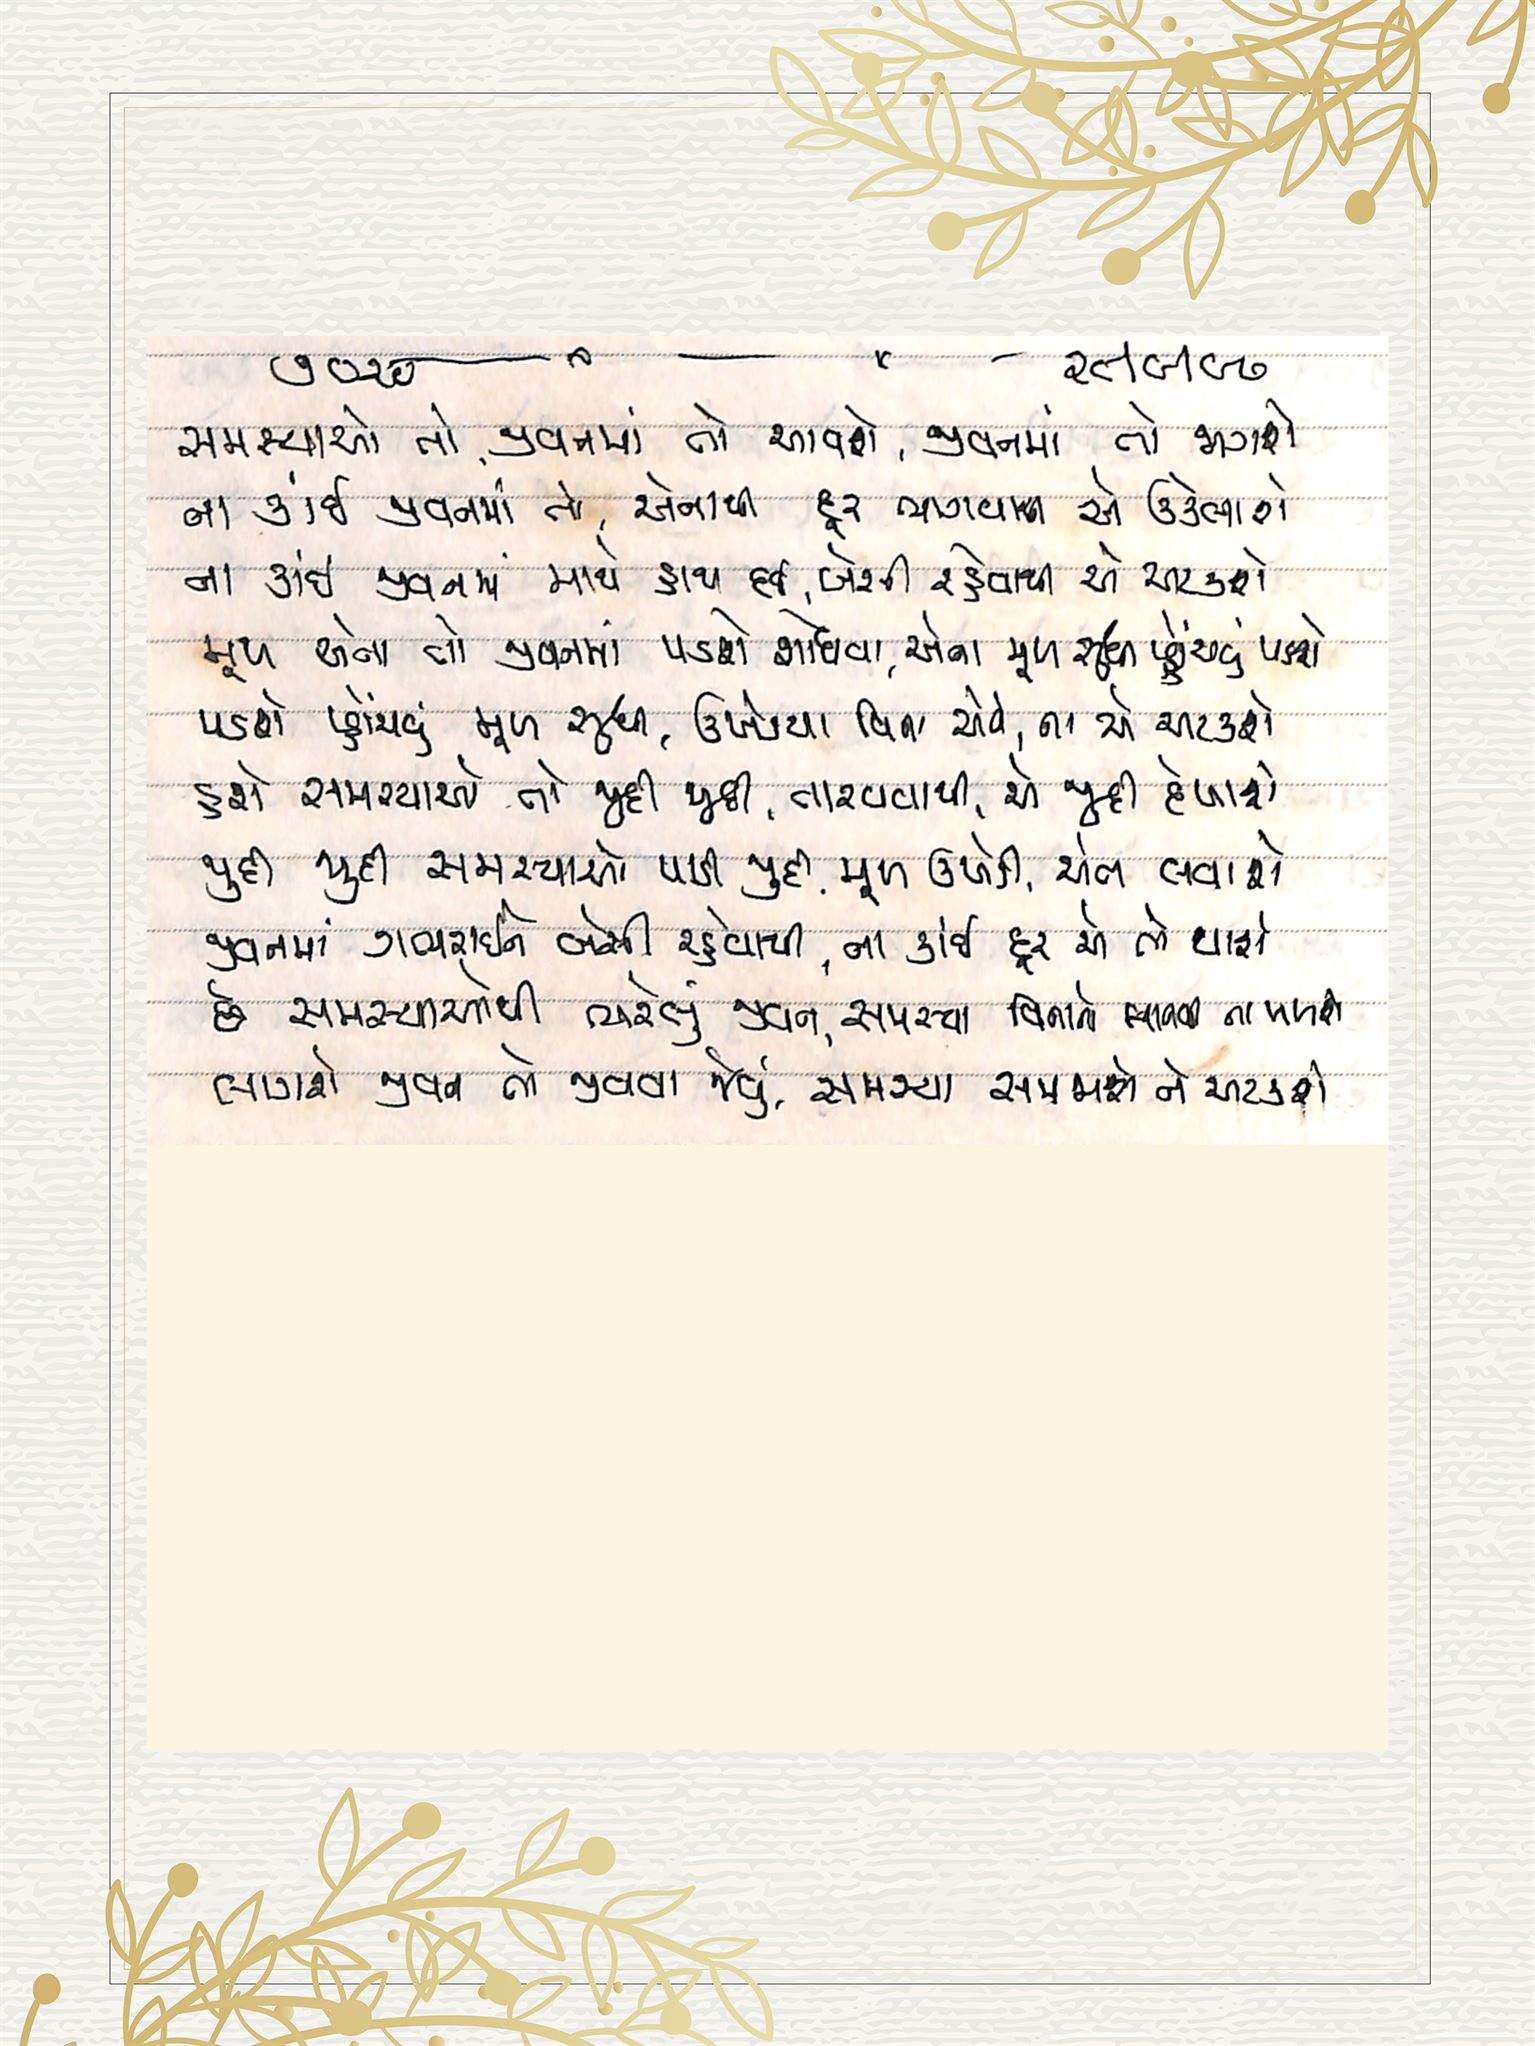 સમસ્યાઓ તો જીવનમાં તો આવશે, જીવનમાં તો જાગશે
ના કાંઈ જીવનમાં તો, એનાથી દૂર ભાગવાથી એ ઉકેલાશે
ના કાંઈ જીવનમાં માથે હાથ દઈ, બેસી રહેવાથી એ અટકશે
મૂળ એના તો જીવનમાં પડશે શોધવા, એના મૂળ સુધી પ્હોંચવું પડશે
પડશે પ્હોંચવું મૂળ સુધી, ઉખેડયા વિના એને, ના એ અટકશે
હશે સમસ્યાઓ તો જુદી જુદી, તારવવાથી, એ જુદી દેખાશે
જુદી જુદી સમસ્યાઓ પાડી જુદી, મૂળ ઉખેડી, એના લેવાશે
જીવનમાં ગભરાઈને બેસી રહેવાથી, ના કાંઈ દૂર એ તો થાશે
છે સમસ્યાઓથી ભરેલું જીવન, સમસ્યા વિનાનો માનવી ના મળશે
લાગશે જીવન તો જીવવા જેવું, સમસ્યા સમજાશે ને અટકશે